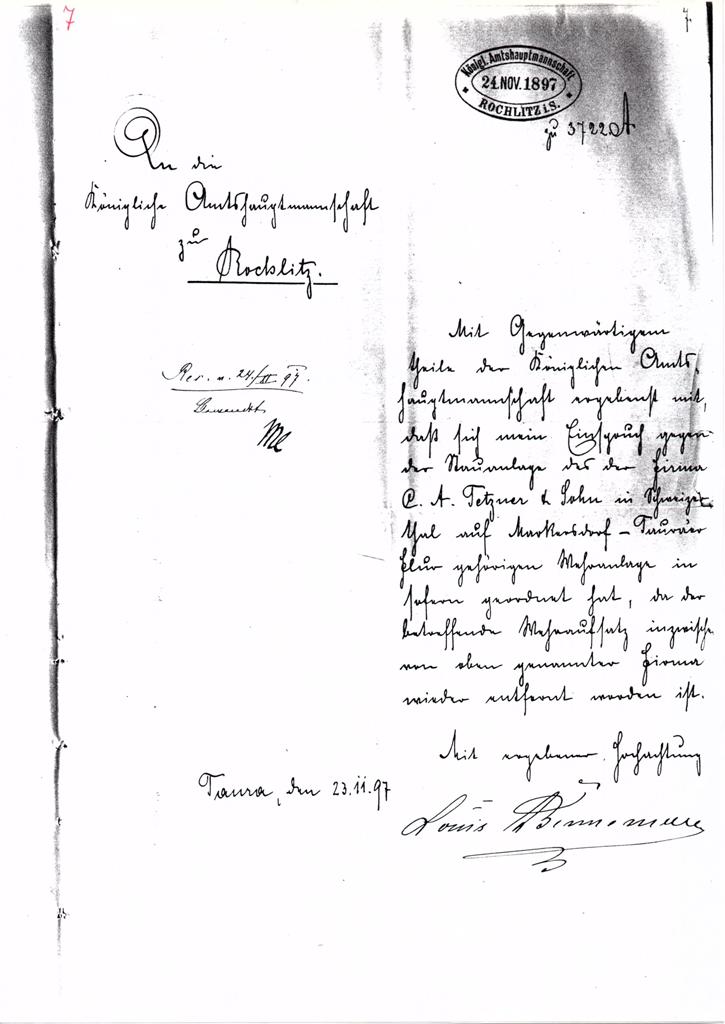 7
7
Königl. Amtshauptmannschaft
24. NOV. 1897
ROCHLITZ i. S.
zu 3722 A
An die
Königliche Amtshauptmannschaft
zu
Rochlitz.
24/11 97.
Mit Gegenwärtigem
theile der Königlichen Amts-
hauptmannschaft ergebenst mit,
daß sich mein Einspruch gegen
der Stauanlage des der Firma
C. A. Tetzner & Sohn in Schweizer
thal auf Markersdorf – Tauraer
Flur gehörigen Wehranlage in
sofern geordnet hat, da der
betreffende Wehraufsatz inzwische
von oben genannter Firma
wieder entfernt worden ist.
Mit ergebener Hochachtung
Taura, den 23.11.97
Louis